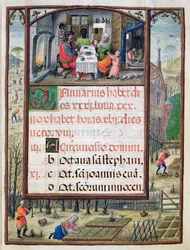 Januarius habet dies
xxxi luna xxx.
nox habet horas xvi. dies
vero viii.
A Circuncisio domini.
b Octava s. stephani.
c Oct. s. joannis eua.
d Oct. scorum innocen